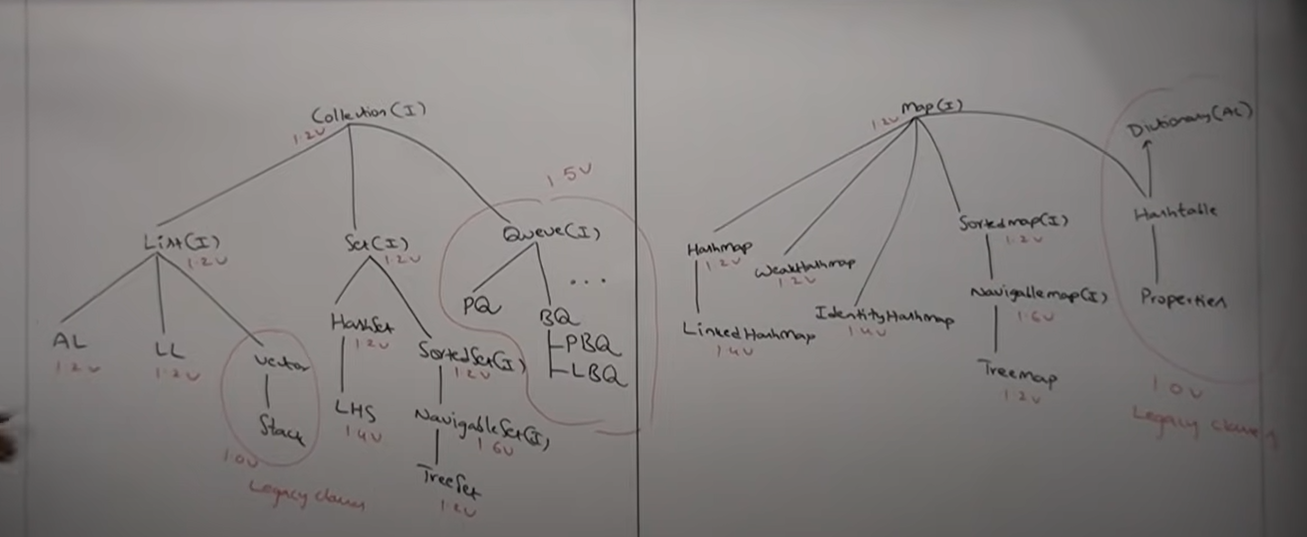 Collection(I)
1.2v
List(I)
1.2v
Set(I)
1.2v
1.5v
Queue(I)
AL
1.2v
LL
1.2v
Vector
Stack
1.0v
Legacy classes
HashSet
1.2v
LHS
1.4v
SortedSet(I)
1.2v
NavigableSet(I)
1.6v
TreeSet
1.2v
PQ
BQ
...
PBQ
LBQ
Map(I)
1.2v
Hashmap
1.2v
LinkedHashmap
1.4v
WeakHashmap
1.2v
IdentityHashmap
1.4v
Sortedmap(I)
1.2v
Navigablemap(I)
1.6v
Treemap
1.2v
Dictionary(AC)
Hashtable
Properties
1.0v
Legacy classes